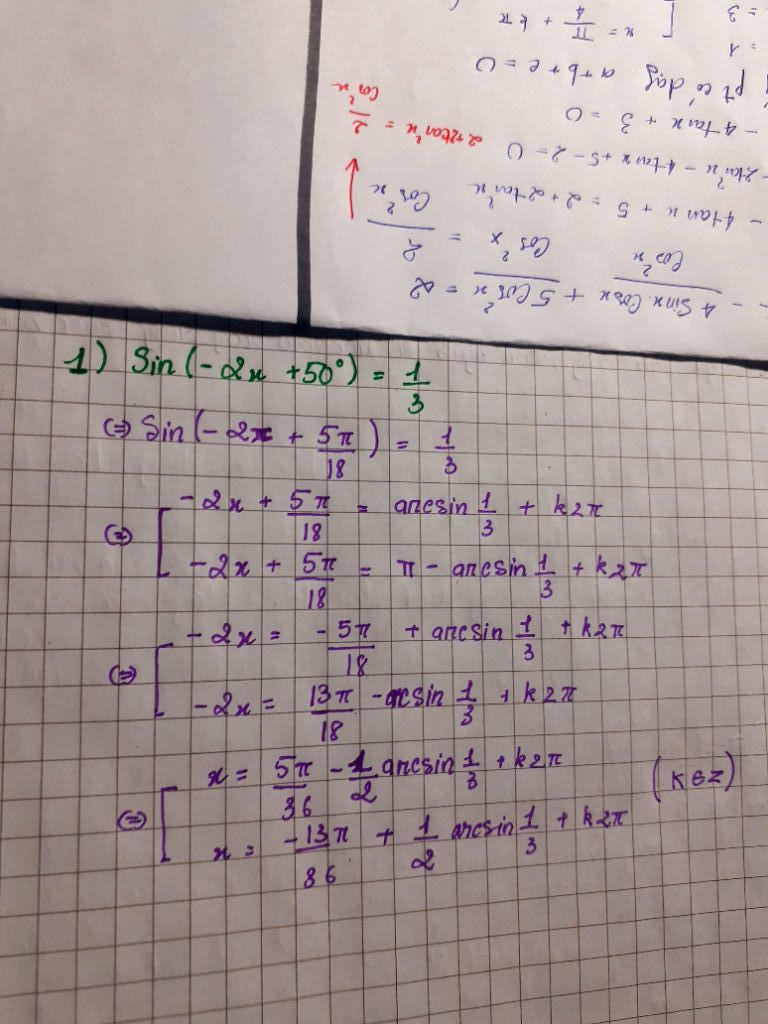 1) Sin(-2x + 50°) = 1/3
(=) Sin(-2x + 5π/18) = 1/3
(=) [ -2x + 5π/18 = arcsin 1/3 + k2π
-2x + 5π/18 = π - arcsin 1/3 + k2π
(=) [ -2x = -5π/18 + arcsin 1/3 + k2π
-2x = 13π/18 - arcsin 1/3 + k2π
(=) [ x = 5π/36 - 1/2 arcsin 1/3 + k2π (k∈Z)
x = -13π/36 + 1/2 arcsin 1/3 + k2π
- 4 Sinx Cosx / Cos²x + 5Cos²x / Cos²x = 2 / Cos²x
- 4tanx + 5 = 2 + 2tan²x
- 2tan²x - 4tanx + 5 - 2 = 0
2+2tan²x = 2/Cos²x
- 4tanx + 3 = 0
pt có dạng a+b+c = 0
= 1
[ x = π/4 + kπ
= 3